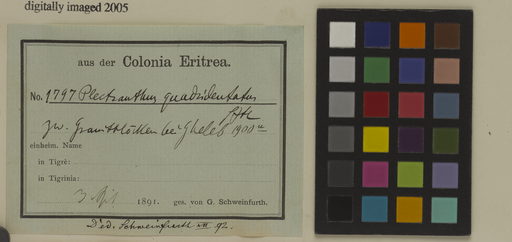 digitally imaged 2005
aus der Colonia Eritrea.
No. 1797 Plectranthus quadridentatus
zw. Granitblöcken bei Gheleb 1900 m
einheim. Name
in Tigré:
in Tigrinia:
3 1891. ges. von G. Schweinfurth.
Ded. Schweinfurth VII 92.